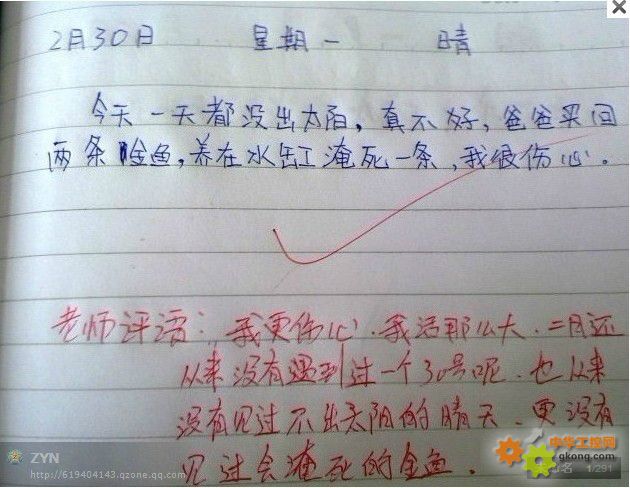 2月30日 星期一 晴
今天一天都没出太阳,真不好,爸爸买回
两条金鱼,养在水缸淹死一条,我很伤心。
老师评语:我更伤心.我活那么大.二月还
从来没有遇到过一个30号呢.也从来
没有见过不出太阳的晴天.更没有
见过会淹死的金鱼.
ZYN
http://619404143.qzone.qq.com
中华工控网
gkong.com
1/291